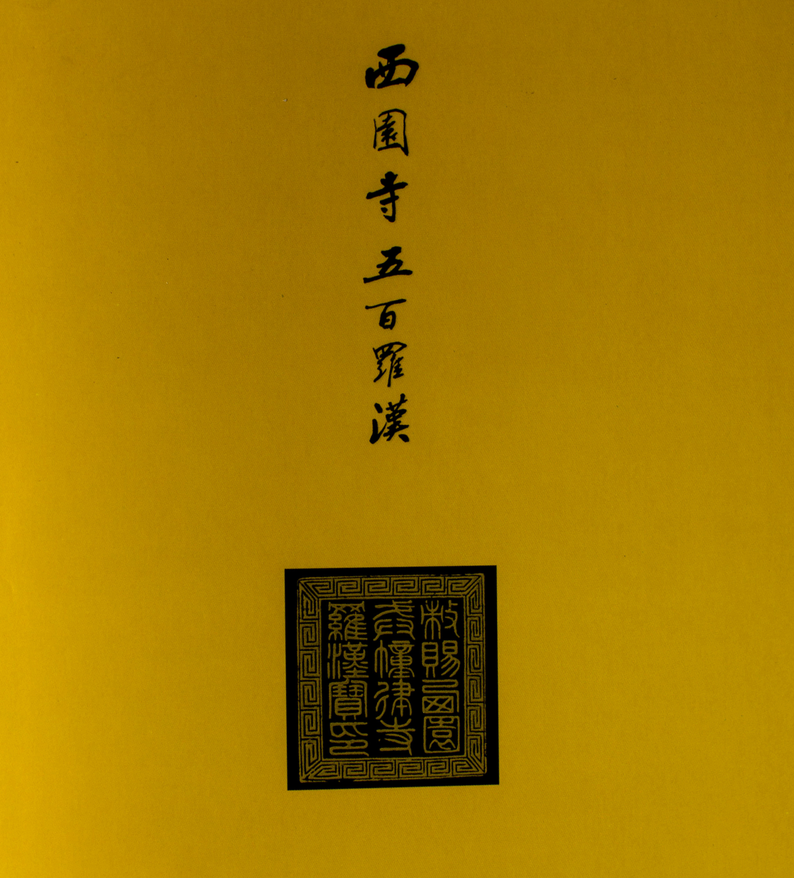 西園寺五百羅漢
敕賜西園
戒幢律寺
羅漢寶印